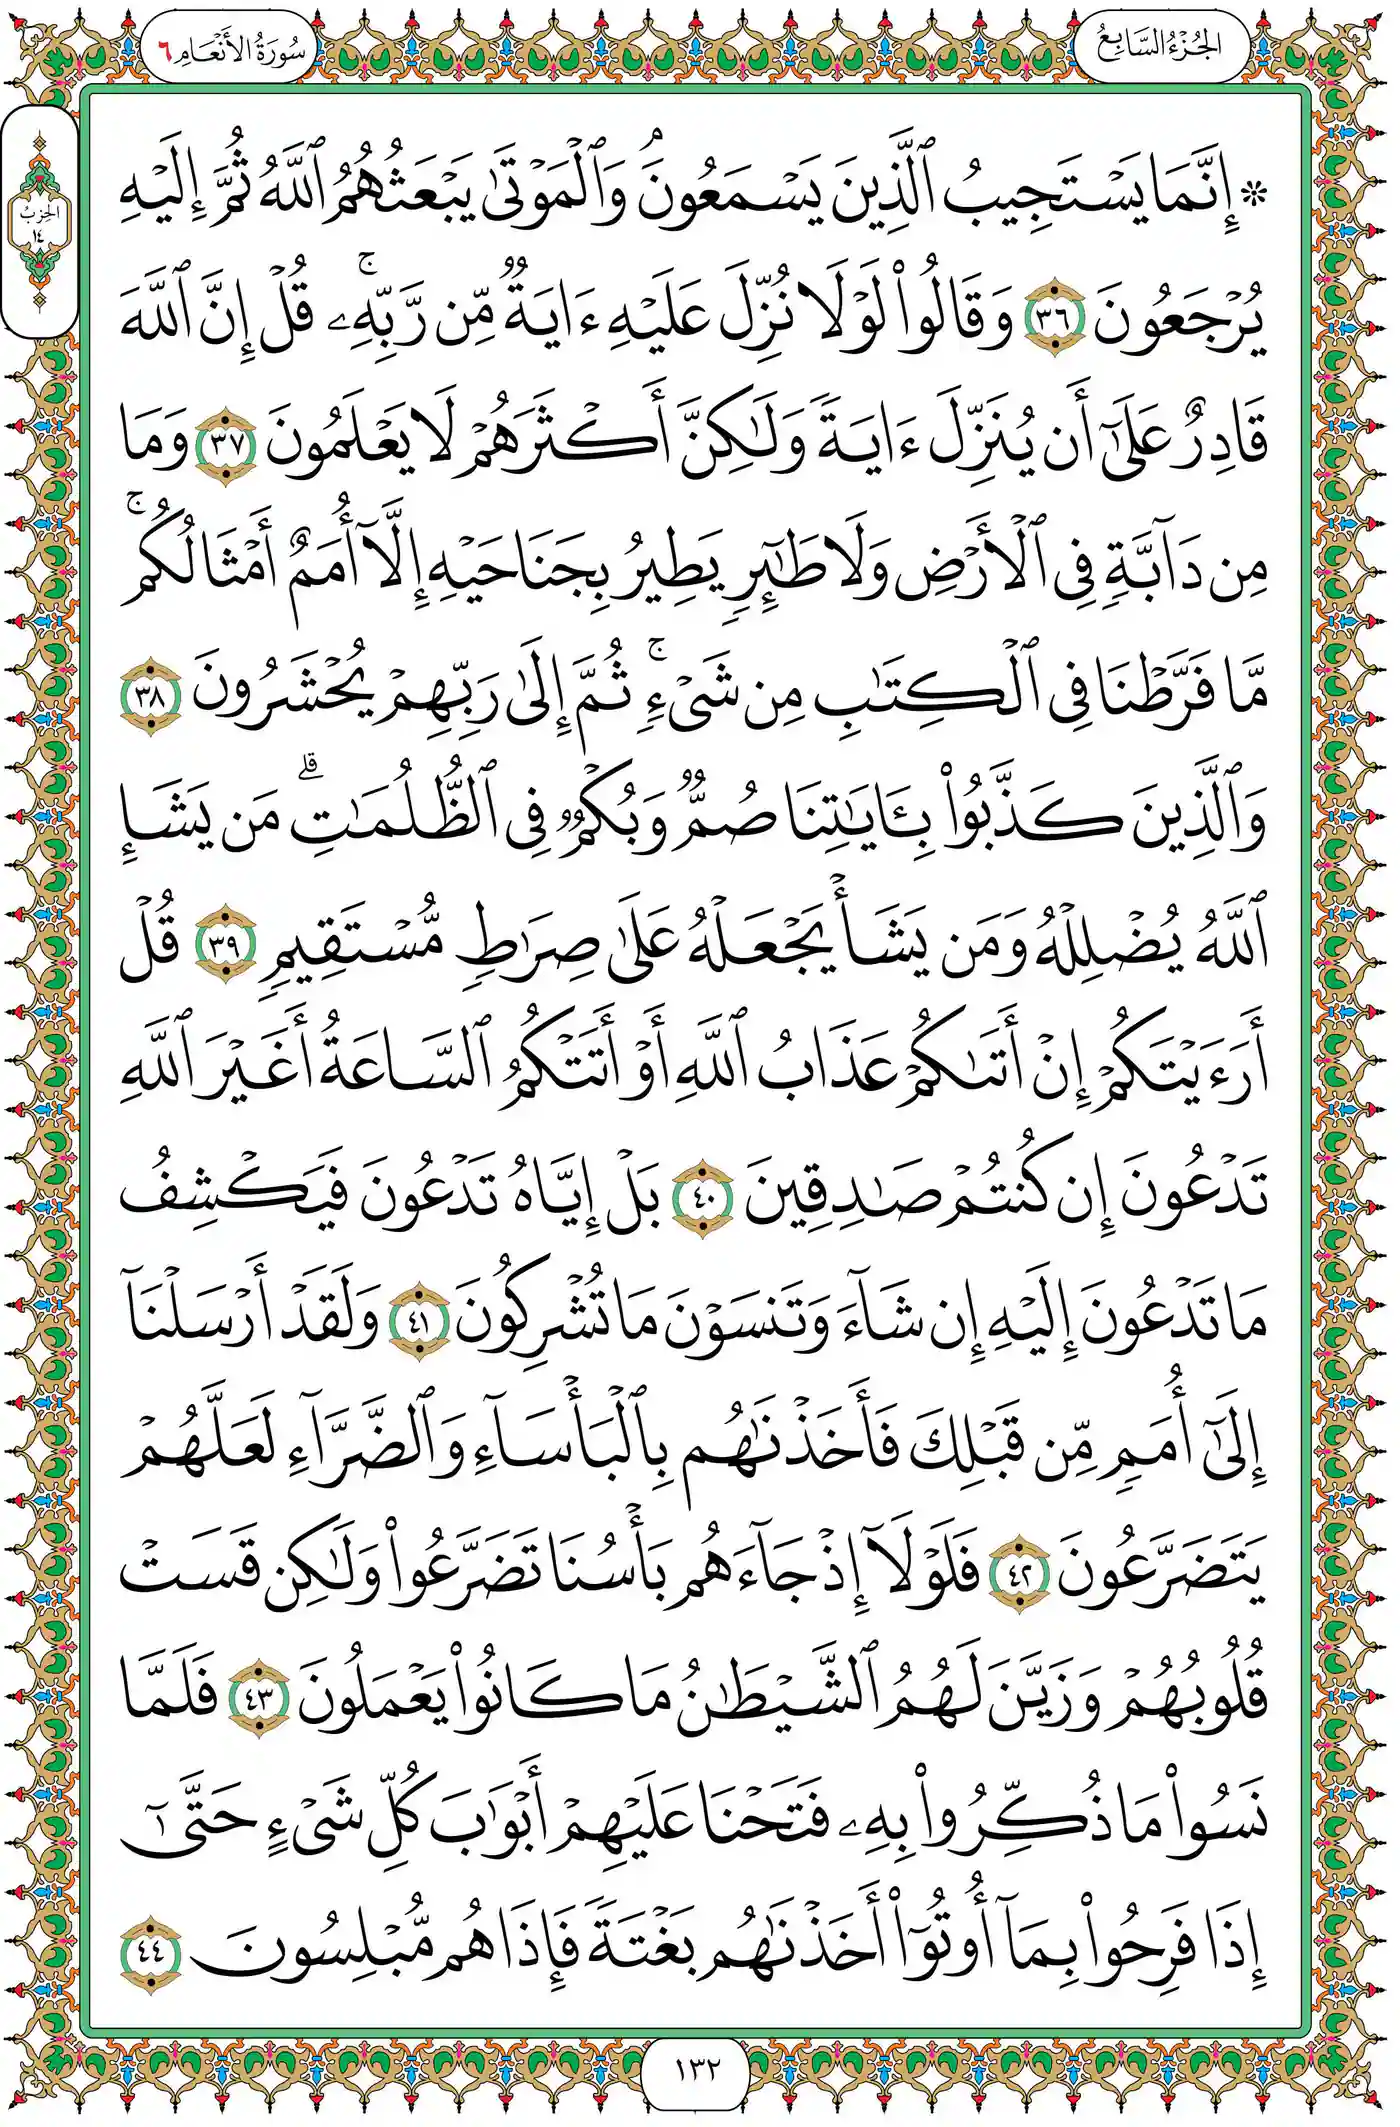 الجُزْءُ السَّابِعُ
سُورَةُ الأَنْعَامِ ٦
الحِزْبُ
١٤
۞ إِنَّمَا يَسْتَجِيبُ ٱلَّذِينَ يَسْمَعُونَۘ وَٱلْمَوْتَىٰ يَبْعَثُهُمُ ٱللَّهُ ثُمَّ إِلَيْهِ
يُرْجَعُونَ ٣٦ وَقَالُوا۟ لَوْلَا نُزِّلَ عَلَيْهِ ءَايَةٌ مِّن رَّبِّهِۦۚ قُلْ إِنَّ ٱللَّهَ
قَادِرٌ عَلَىٰٓ أَن يُنَزِّلَ ءَايَةً وَلَـٰكِنَّ أَكْثَرَهُمْ لَا يَعْلَمُونَ ٣٧ وَمَا
مِن دَآبَّةٍ فِى ٱلْأَرْضِ وَلَا طَـٰٓئِرٍ يَطِيرُ بِجَنَاحَيْهِ إِلَّآ أُمَمٌ أَمْثَالُكُمۚ
مَّا فَرَّطْنَا فِى ٱلْكِتَـٰبِ مِن شَىْءٍۚ ثُمَّ إِلَىٰ رَبِّهِمْ يُحْشَرُونَ ٣٨
وَٱلَّذِينَ كَذَّبُوا۟ بِـَٔايَـٰتِنَا صُمٌّ وَبُكْمٌ فِى ٱلظُّلُمَـٰتِۗ مَن يَشَإِ
ٱللَّهُ يُضْلِلْهُ وَمَن يَشَأْ يَجْعَلْهُ عَلَىٰ صِرَٰطٍ مُّسْتَقِيمٍ ٣٩ قُلْ
أَرَءَيْتَكُمْ إِنْ أَتَىٰكُمْ عَذَابُ ٱللَّهِ أَوْ أَتَتْكُمُ ٱلسَّاعَةُ أَغَيْرَ ٱللَّهِ
تَدْعُونَ إِن كُنتُمْ صَـٰدِقِينَ ٤٠ بَلْ إِيَّاهُ تَدْعُونَ فَيَكْشِفُ
مَا تَدْعُونَ إِلَيْهِ إِن شَآءَ وَتَنسَوْنَ مَا تُشْرِكُونَ ٤١ وَلَقَدْ أَرْسَلْنَآ
إِلَىٰٓ أُمَمٍ مِّن قَبْلِكَ فَأَخَذْنَـٰهُم بِٱلْبَأْسَآءِ وَٱلضَّرَّآءِ لَعَلَّهُمْ
يَتَضَرَّعُونَ ٤٢ فَلَوْلَآ إِذْ جَآءَهُم بَأْسُنَا تَضَرَّعُوا۟ وَلَـٰكِن قَسَتْ
قُلُوبُهُمْ وَزَيَّنَ لَهُمُ ٱلشَّيْطَـٰنُ مَا كَانُوا۟ يَعْمَلُونَ ٤٣ فَلَمَّا
نَسُوا۟ مَا ذُكِّرُوا۟ بِهِۦ فَتَحْنَا عَلَيْهِمْ أَبْوَٰبَ كُلِّ شَىْءٍ حَتَّىٰٓ
إِذَا فَرِحُوا۟ بِمَآ أُوتُوٓا۟ أَخَذْنَـٰهُم بَغْتَةً فَإِذَا هُم مُّبْلِسُونَ ٤٤
١٣٢